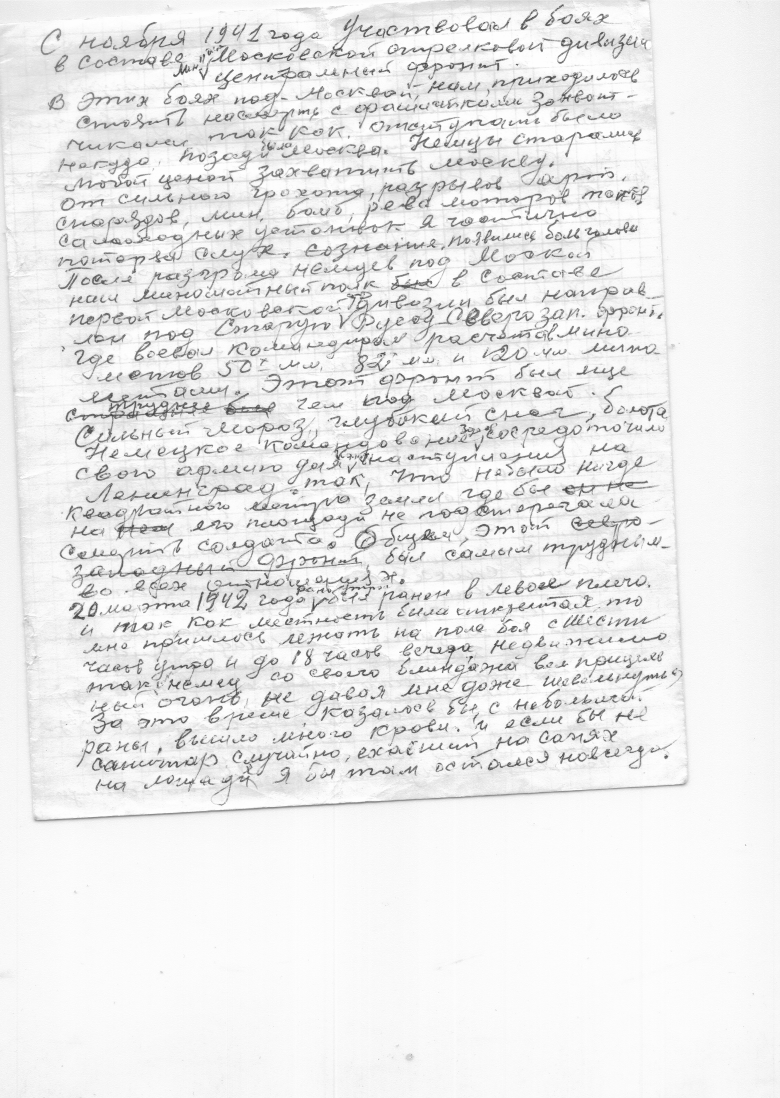 С ноября 1941 года участвовал в боях
в составе Московской стрелковой дивизии
центральный фронт.
В этих боях под-Москвой, нам приходилось
стоять насмерть с фашисткими захват-
чиками так как, отступать было
некуда, позади была Москва. Немцы старались
любой ценой захватить Москву.
от сильного грохота, разрывов арт.
снарядов, мин, бомб, рева моторов танков
самоходных установок я частично
потерял слух, сознание, появились боли головы
После разгрома немцев под Москвой
наш минометный полк был в составе
первой Московской дивизии был направ-
лен под Старую Руссу Северо зап. фронт.
где воевал командиром расчетов мино
метов 50х мм, 82х мм. и 120 мм. мино
метами. Этот фронт был еще
труднее чем под Москвой.
Сильный мороз, глубокий снег, болота
Немецкое командование сосредоточило
свою армию для наступления на
Ленинград так, что небыло нигде
квадратного метра земли где бы он не
на его площади не подстерегала
смерть солдата. Общем, этот северо-
западный фронт был самым трудным-
во всех отношениях.
20 марта 1942 года был ранен в левое плечо.
и так как местность была открытая то
мне пришлось лежать на поле боя с шести
часов утра и до 18 часов вечера, недвижимо
так немец со своего блиндажа вел прицель
ный огонь, не давая мне даже шевельнуться
За это время казалось бы, с небольшой
раны, вышло много крови. и если бы не
санитар случайно, ехавший на санях
на лошади я бы там остался навсегда.